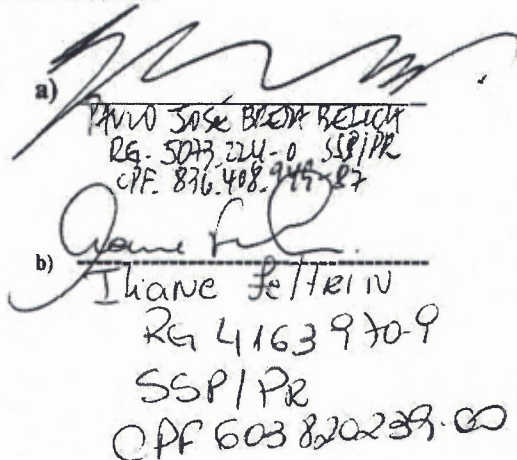 a)
PAULO JOSÉ BREDA BELICH
RG. 5073.224-0 SSP/PR
CPF. 836.408.949-87
b)
Iliane Feltrin
RG 4163970-9
SSP/PR
CPF 603820239-00